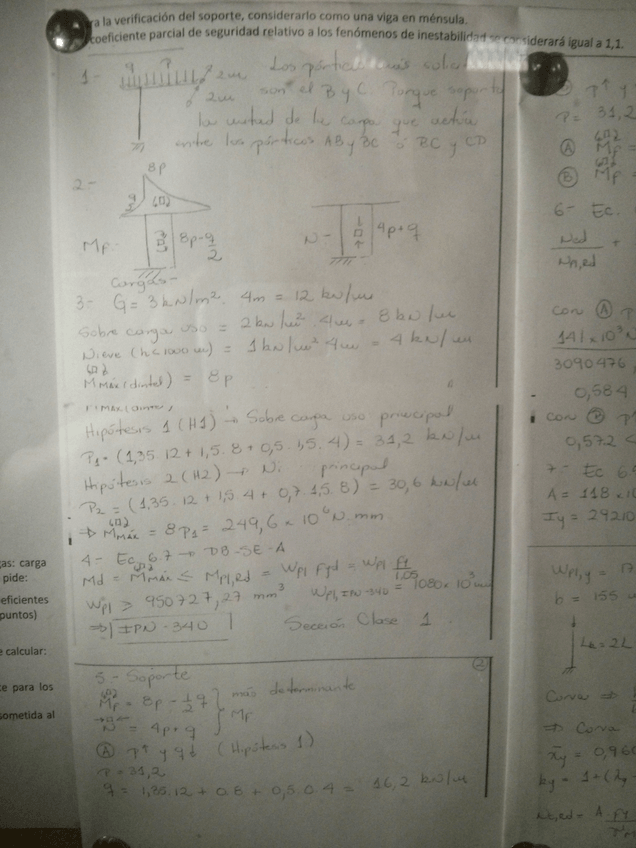 ra la verificación del soporte, considerarlo como una viga en ménsula.
coeficiente parcial de seguridad relativo a los fenómenos de inestabilidad se considerará igual a 1,1.
1-
q
P
2m
2m
Los pórticos más
son el B y C. Porque
la mitad de la carga que actúa
entre los pórticos AB y BC ó BC y CD
2-
8p
q/2
Mf.
8p-q/2
N-
4p+q
Cargas-
3- G = 3kN/m². 4m = 12 kN/m
Sobre carga uso = 2kN/m². 4m = 8 kN/m
Nieve (h<1000m) = 1kN/m² 4m = 4 kN/m
Mmáx(dintel) = 8p
Hipótesis 1 (H1) → Sobre carga uso principal
P1 = (1,35. 12 + 1,5. 8 + 0,5. 1,5. 4) = 31,2 kN/m
Hipótesis 2 (H2) → Ni principal
P2 = (1,35. 12 + 1,5. 4 + 0,7. 1,5. 8) = 30,6 kN/m
⇒ Mmáx = 8P1 = 249,6 x 10⁶ N.mm
4- Ec. 6.7 → DB-SE-A
Md = Mmáx ≤ Mpl,Rd = Wpl fyd = Wpl fy/1,05
Wpl ≥ 950727,27 mm³ Wpl,IPN-340 = 1080 x 10³
⇒ IPN-340 Sección Clase 1
5- Soporte
Mf = 8p - 1/2 q
N = 4p+q
más determinante
Mf
Ⓐ P↑ y q↓ (Hipótesis 1)
P=31,2
q = 1,35.12 + 0.8 + 0,5.0.4 = 16,2 kN/m
②
P↑ y
P= 31,2
Ⓐ Mf =
Ⓑ Mf =
6- Ec.
Ned
+
con Ⓐ
141x10³
3090476
0,584
con Ⓑ
0,572
7- Ec 6
A = 118 x1
Iy = 29210
Wpl,y = 17
b = 155
Lk = 2L
Curva ⇒
⇒ Curva
λy = 0,96
ky = 1+(λy -
as: carga
pide:
eficientes
puntos)
e calcular:
e para los
ometida al